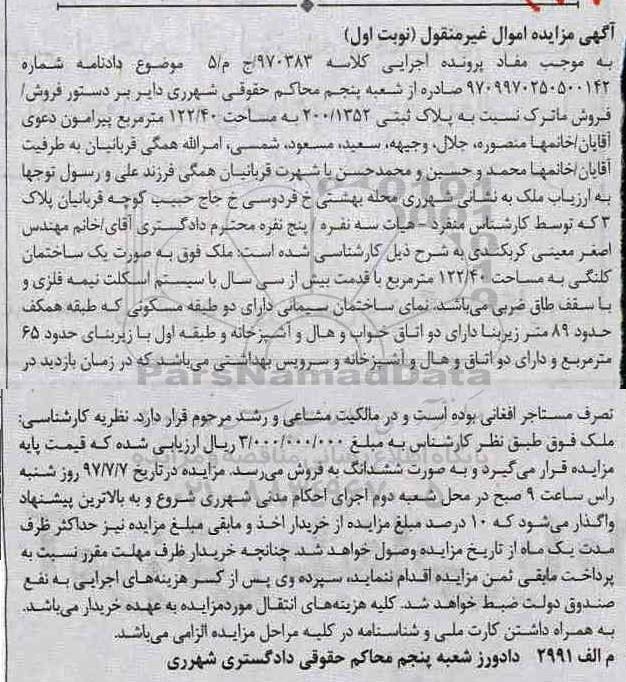 آگهی مزایده اموال غیرمنقول (نوبت اول)
به موجب مفاد پرونده اجرایی کلاسه ۹۷۰۳۸۳/ج م/۵ موضوع دادنامه شماره
۹۷۰۹۹۷۰۲۵۰۵۰۰۱۴۲ صادره از شعبه پنجم محاکم حقوقی شهرری دایر بر دستور فروش/
فروش ماترک نسبت به پلاک ثبتی ۲۰۰/۱۳۵۲ به مساحت ۱۲۲/۴۰ مترمربع پیرامون دعوی
آقایان/خانمها منصوره، جلال، وجیهه، سعید، مسعود، شمسی، امرالله همگی قربانیان به طرفیت
آقایان/خانمها محمد و حسین و محمدحسن با شهرت قربانیان همگی فرزند علی و رسول توجها
به ارزیاب ملک به نشانی شهرری محله بهشتی خ فردوسی خ حاج حبیب کوچه قربانیان پلاک
۳ که توسط کارشناس منفرد - هیأت سه نفره / پنج نفره محترم دادگستری آقای/خانم مهندس
اصغر معینی کربکندی به شرح ذیل کارشناسی شده است: ملک فوق به صورت یک ساختمان
کلنگی به مساحت ۱۲۲/۴۰ مترمربع با قدمت بیش از سی سال با سیستم اسکلت نیمه فلزی و
با سقف طاق ضربی می‌باشد. نمای ساختمان سیمانی دارای دو طبقه مسکونی که طبقه همکف
حدود ۸۹ متر زیربنا دارای دو اتاق خواب و هال و آشپزخانه و طبقه اول با زیربنای حدود ۶۵
مترمربع و دارای دو اتاق و هال و آشپزخانه و سرویس بهداشتی می‌باشد که در زمان بازدید در
ParsNamadData
تصرف مستاجر افغانی بوده است و در مالکیت مشاعی و رشد مرحوم قرار دارد. نظریه کارشناسی:
ملک فوق طبق نظر کارشناس به مبلغ ۳/۰۰۰/۰۰۰/۰۰۰ ریال ارزیابی شده که قیمت پایه
مزایده قرار می‌گیرد و به صورت ششدانگ به فروش می‌رسد. مزایده در تاریخ ۹۷/۷/۷ روز شنبه
راس ساعت ۹ صبح در محل شعبه دوم اجرای احکام مدنی شهرری شروع و به بالاترین پیشنهاد
واگذار می‌شود که ۱۰ درصد مبلغ مزایده از خریدار اخذ و مابقی مبلغ مزایده نیز حداکثر ظرف
مدت یک ماه از تاریخ مزایده وصول خواهد شد. چنانچه خریدار ظرف مهلت مقرر نسبت به
پرداخت مابقی ثمن مزایده اقدام ننماید، سپرده وی پس از کسر هزینه‌های اجرایی به نفع
صندوق دولت ضبط خواهد شد. کلیه هزینه‌های انتقال موردمزایده به عهده خریدار می‌باشد.
به همراه داشتن کارت ملی و شناسنامه در کلیه مراحل مزایده الزامی می‌باشد.
م الف ۲۹۹۱ دادورز شعبه پنجم محاکم حقوقی دادگستری شهرری